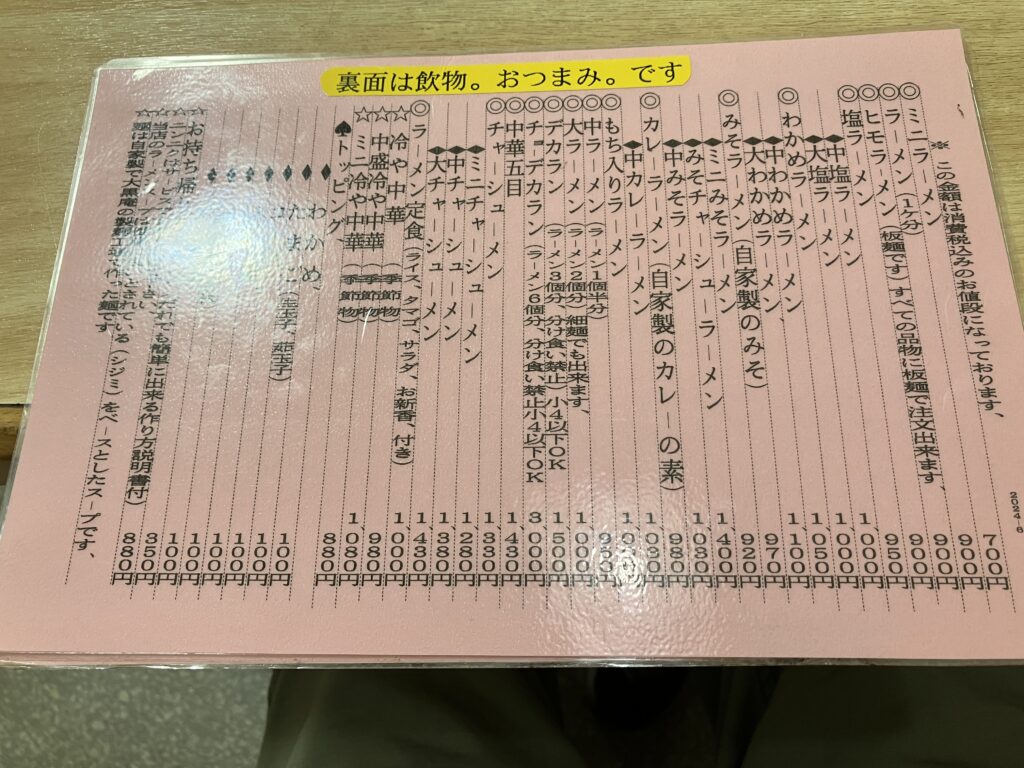 裏面は飲物。おつまみ。です
2024-6
※この金額は消費税込みのお値段になっております、
◎ミニラーメン
◎ラーメン(1ケ分)(板麺です)すべての品物に板麺で注文出来ます、
◎ヒモラーメン
◎塩ラーメン
◆中塩ラーメン
◆大塩ラーメン
◎わかめラーメン
◆中わかめラーメン
◆大わかめラーメン
◎みそラーメン(自家製のみそ)
◆ミニみそラーメン
◆みそチャーシューラーメン
◆中みそラーメン
◎カレーラーメン(自家製のカレーの素)
◆中カレーラーメン
◎もち入りラーメン
◎中ラーメン(ラーメン1個半分)
◎大ラーメン(ラーメン2個分)細麺でも出来ます、
◎デカラン(ラーメン3個分、分け食い禁止)小4以下OK
◎チョデカラン(ラーメン6個分、分け食い禁止小4以下OK
◎中華五目
◎チャーシューメン
◆ミニチャーシューメン
◆中チャーシューメン
◆大チャーシューメン
◎ラーメン定食(ライス、タマゴ、サラダ、お新香、付き)
☆冷や中華(季節物)
☆中盛冷や中華(季節物)
☆ミニ冷や中華(季節物)
♠トッピング
◆わかめ、
◆たまご(生玉子、茹玉子)
☆お持ち帰
だれでも簡単に出来る作り方説明書付)
されている(シジミ)をベースとしたスープです、
麺は自家製で大黒庵の製麺工場で作った麺です。
700円
900円
900円
900円
950円
1,000円
1,000円
1,050円
1,100円
970円
920円
1,400円
1,030円
980円
1,030円
950円
1,000円
1,500円
3,000円
1,430円
1,330円
1,280円
1,380円
1,430円
1,000円
980円
1,080円
880円
100円
100円
100円
100円
100円
100円
350円
880円